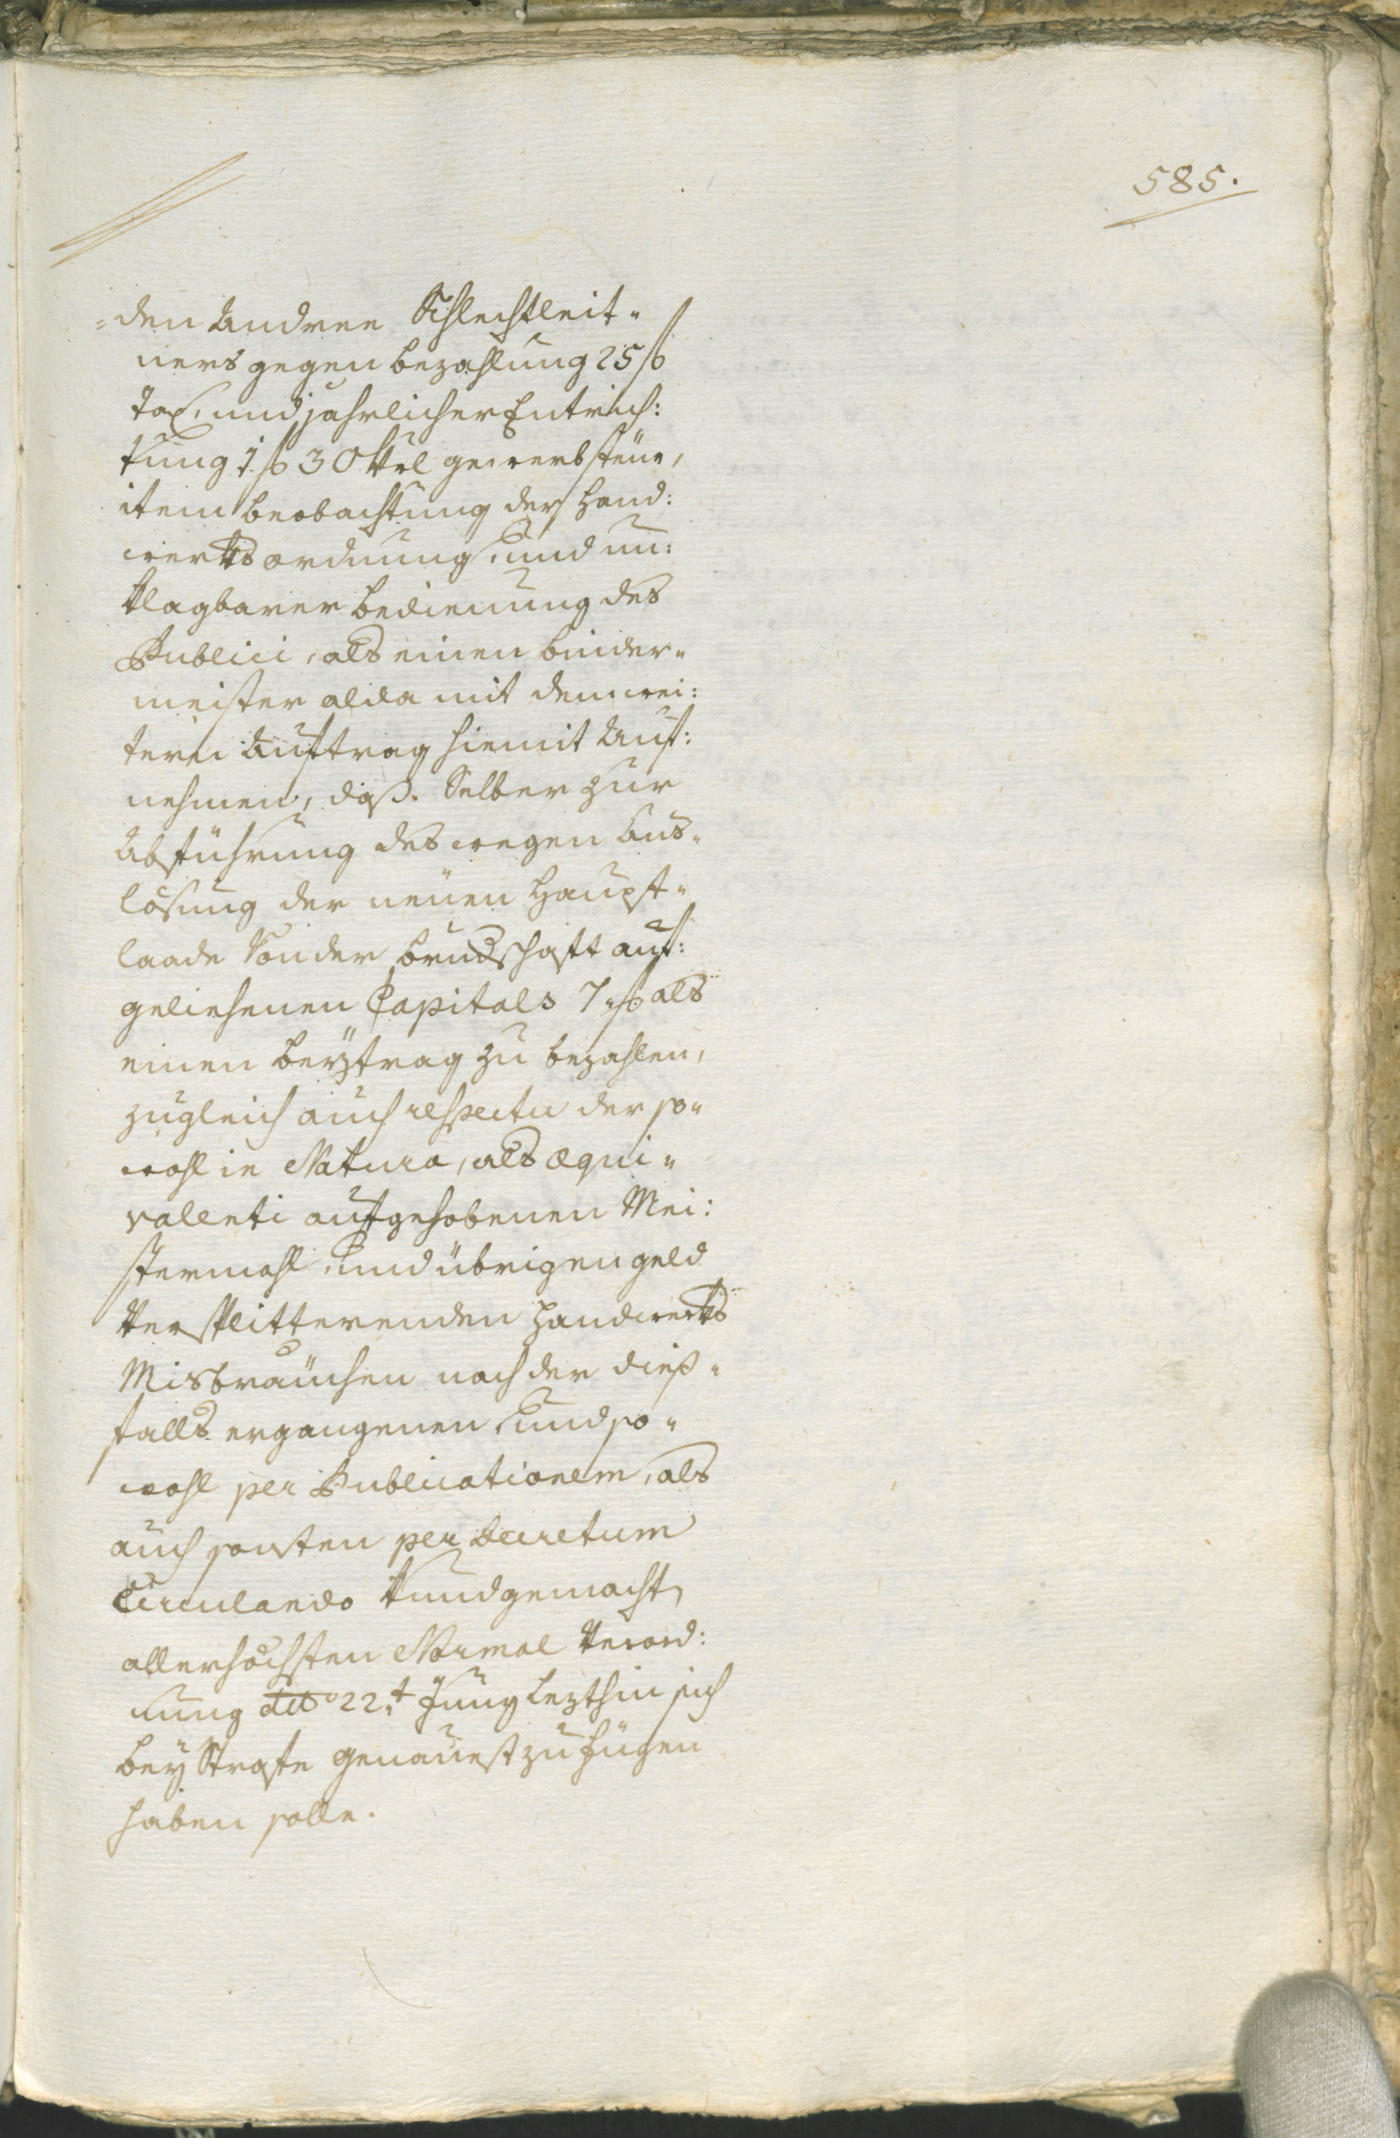 585.
=den Andree Schlechtleit=
ners gegen bezahlung 25 f
Tax, und jahrlicher Entrich:
tung 1 f 30 krl gewerbsteur,
item beobachtung der Hand:
werks ordnung, und un:
klagbarer bedienung des
Publici, als einen binder=
meister alda mit dem wei:
tern Auftrag hiemit Auf:
nehmen, daß Selber zur
Abführung des wegen aus=
lösung der neuen Haupt=
laade Von der brudschafft auf:
geliehenen Capitals 7 f als
einen beÿtrag zu bezahlen,
zugleich auch respectu der so=
wohl in Natura, als æqui=
valenti aufgehobenen Mei:
stermahl, und übrigen geld
Versplitterenden Handwerks
Misbräuchen nach der dieß=
falls ergangenen, und so=
wohl per Publicationem, als
auch sonsten per Decretum
Circulando kundgemacht,
allerhöchsten Normal Verord:
nung ddo 22t Junÿ lezthin sich
beÿ Strafe genauest zu fügen
haben solle.